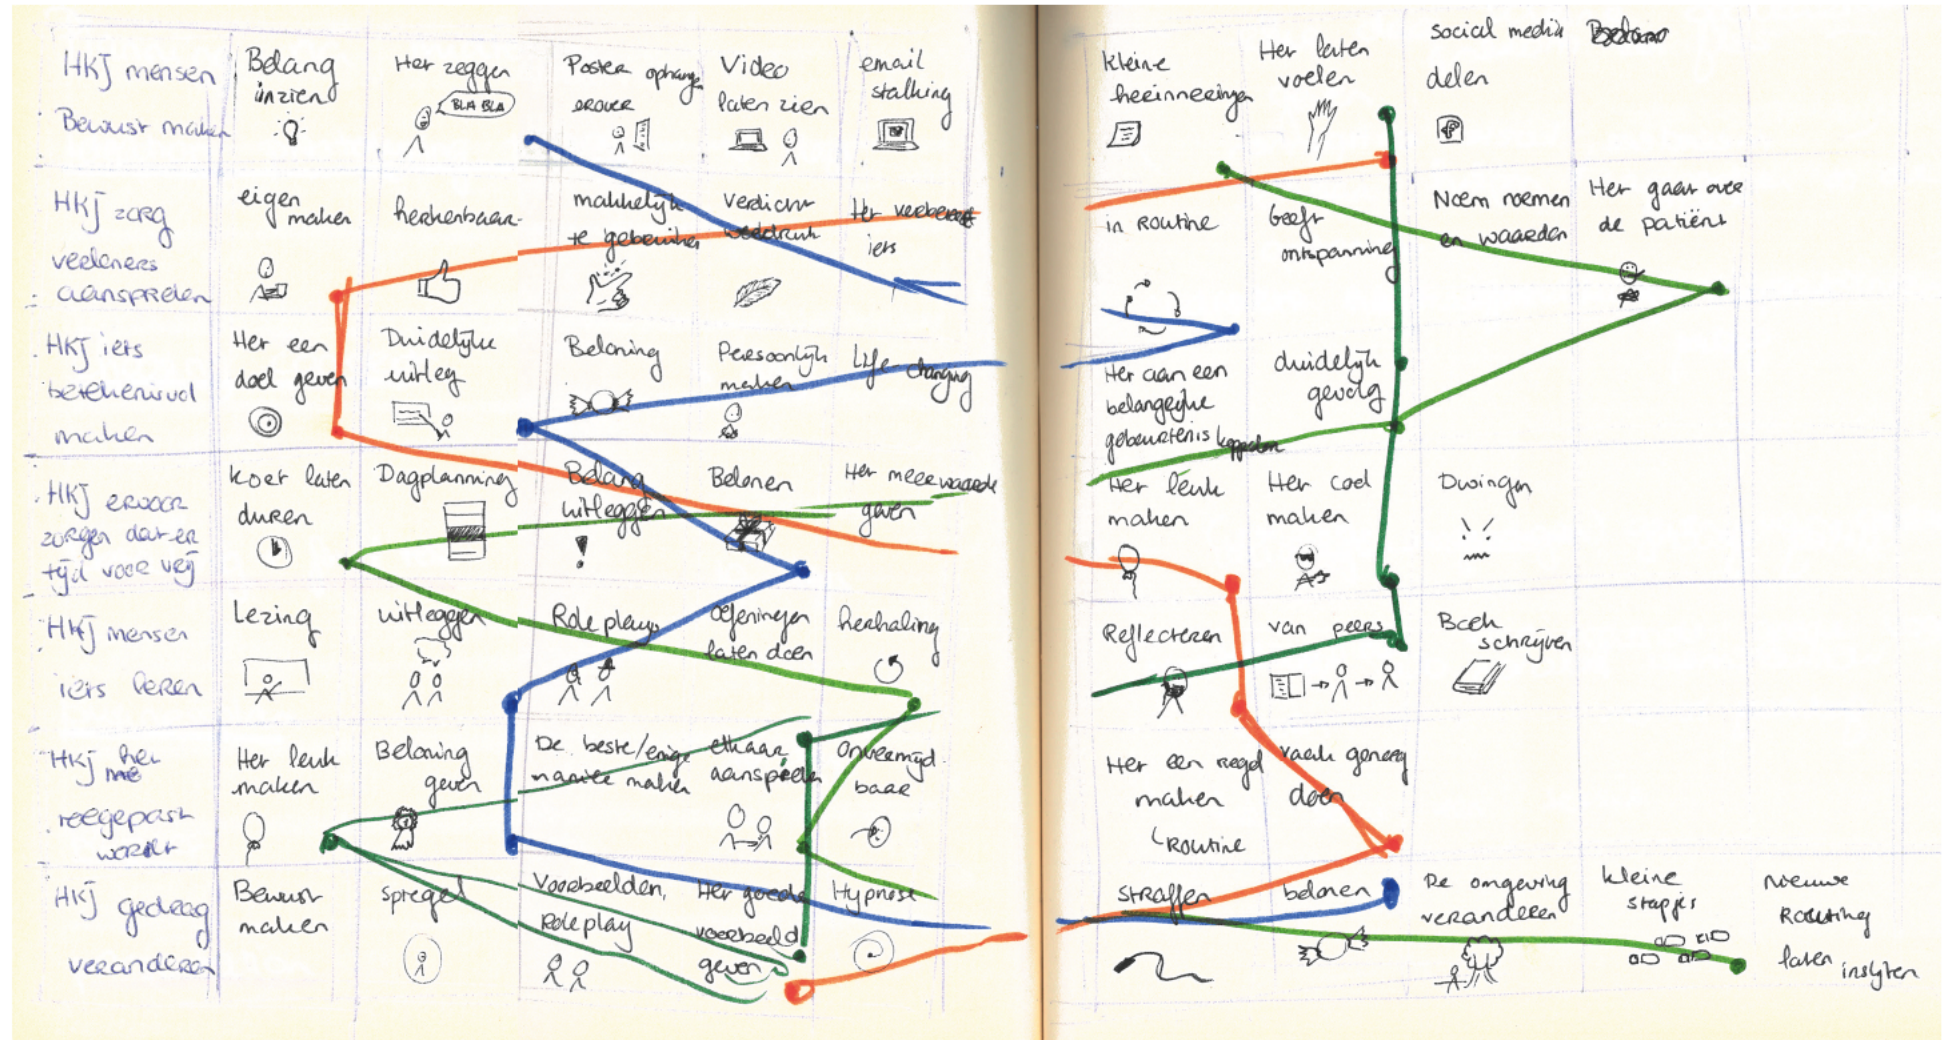 HKJ mensen
Bewust maken
Belang
inzien
Her zeggen
BLA BLA
Poster ophangen
erover
Video
laten zien
email
stalking
kleine
herinneringen
Her laten
voelen
social media
delen
HKJ zorg
verleners
aanspreken
eigen
maken
herkenbaar
makkelijk
te gebruiken
verdicht
Het verbetert
iers
in Routine
Geeft
ontspanning
Noem normen
en waarden
Her gaat over
de patiënt
HKJ iets
betekenisvol
maken
Her een
doel geven
Duidelijke
uitleg
Beloning
Persoonlijk
maken
Life-changing
Her aan een
belangrijke
gebeurtenis koppelen
duidelijk
gevolg
HKJ ervoor
zorgen dat er
tijd voor vrij
kort laten
duren
Dagplanning
Belang
uitleggen
Belonen
Her meerwaarde
geven
Her leuk
maken
Her cool
maken
Dwingen
HKJ mensen
iets leren
Lezing
uitleggen
Role play
oefeningen
laten doen
herhaling
Reflecteren
van peers
Boek
schrijven
HKJ her
toegepast
wordt
Her leuk
maken
Beloning
geven
De beste/enige
manier maken
elkaar
aanspreken
onvermijd
baar
Her een regel
maken
Routine
vaak genoeg
doen
HKJ gedrag
veranderen
Bewust
maken
spiegel
Voorbeelden,
Role play
Her goede
voorbeeld
geven
Hypnose
straffen
belonen
De omgeving
veranderen
kleine
stapjes
nieuwe
Routing
laten inslijten